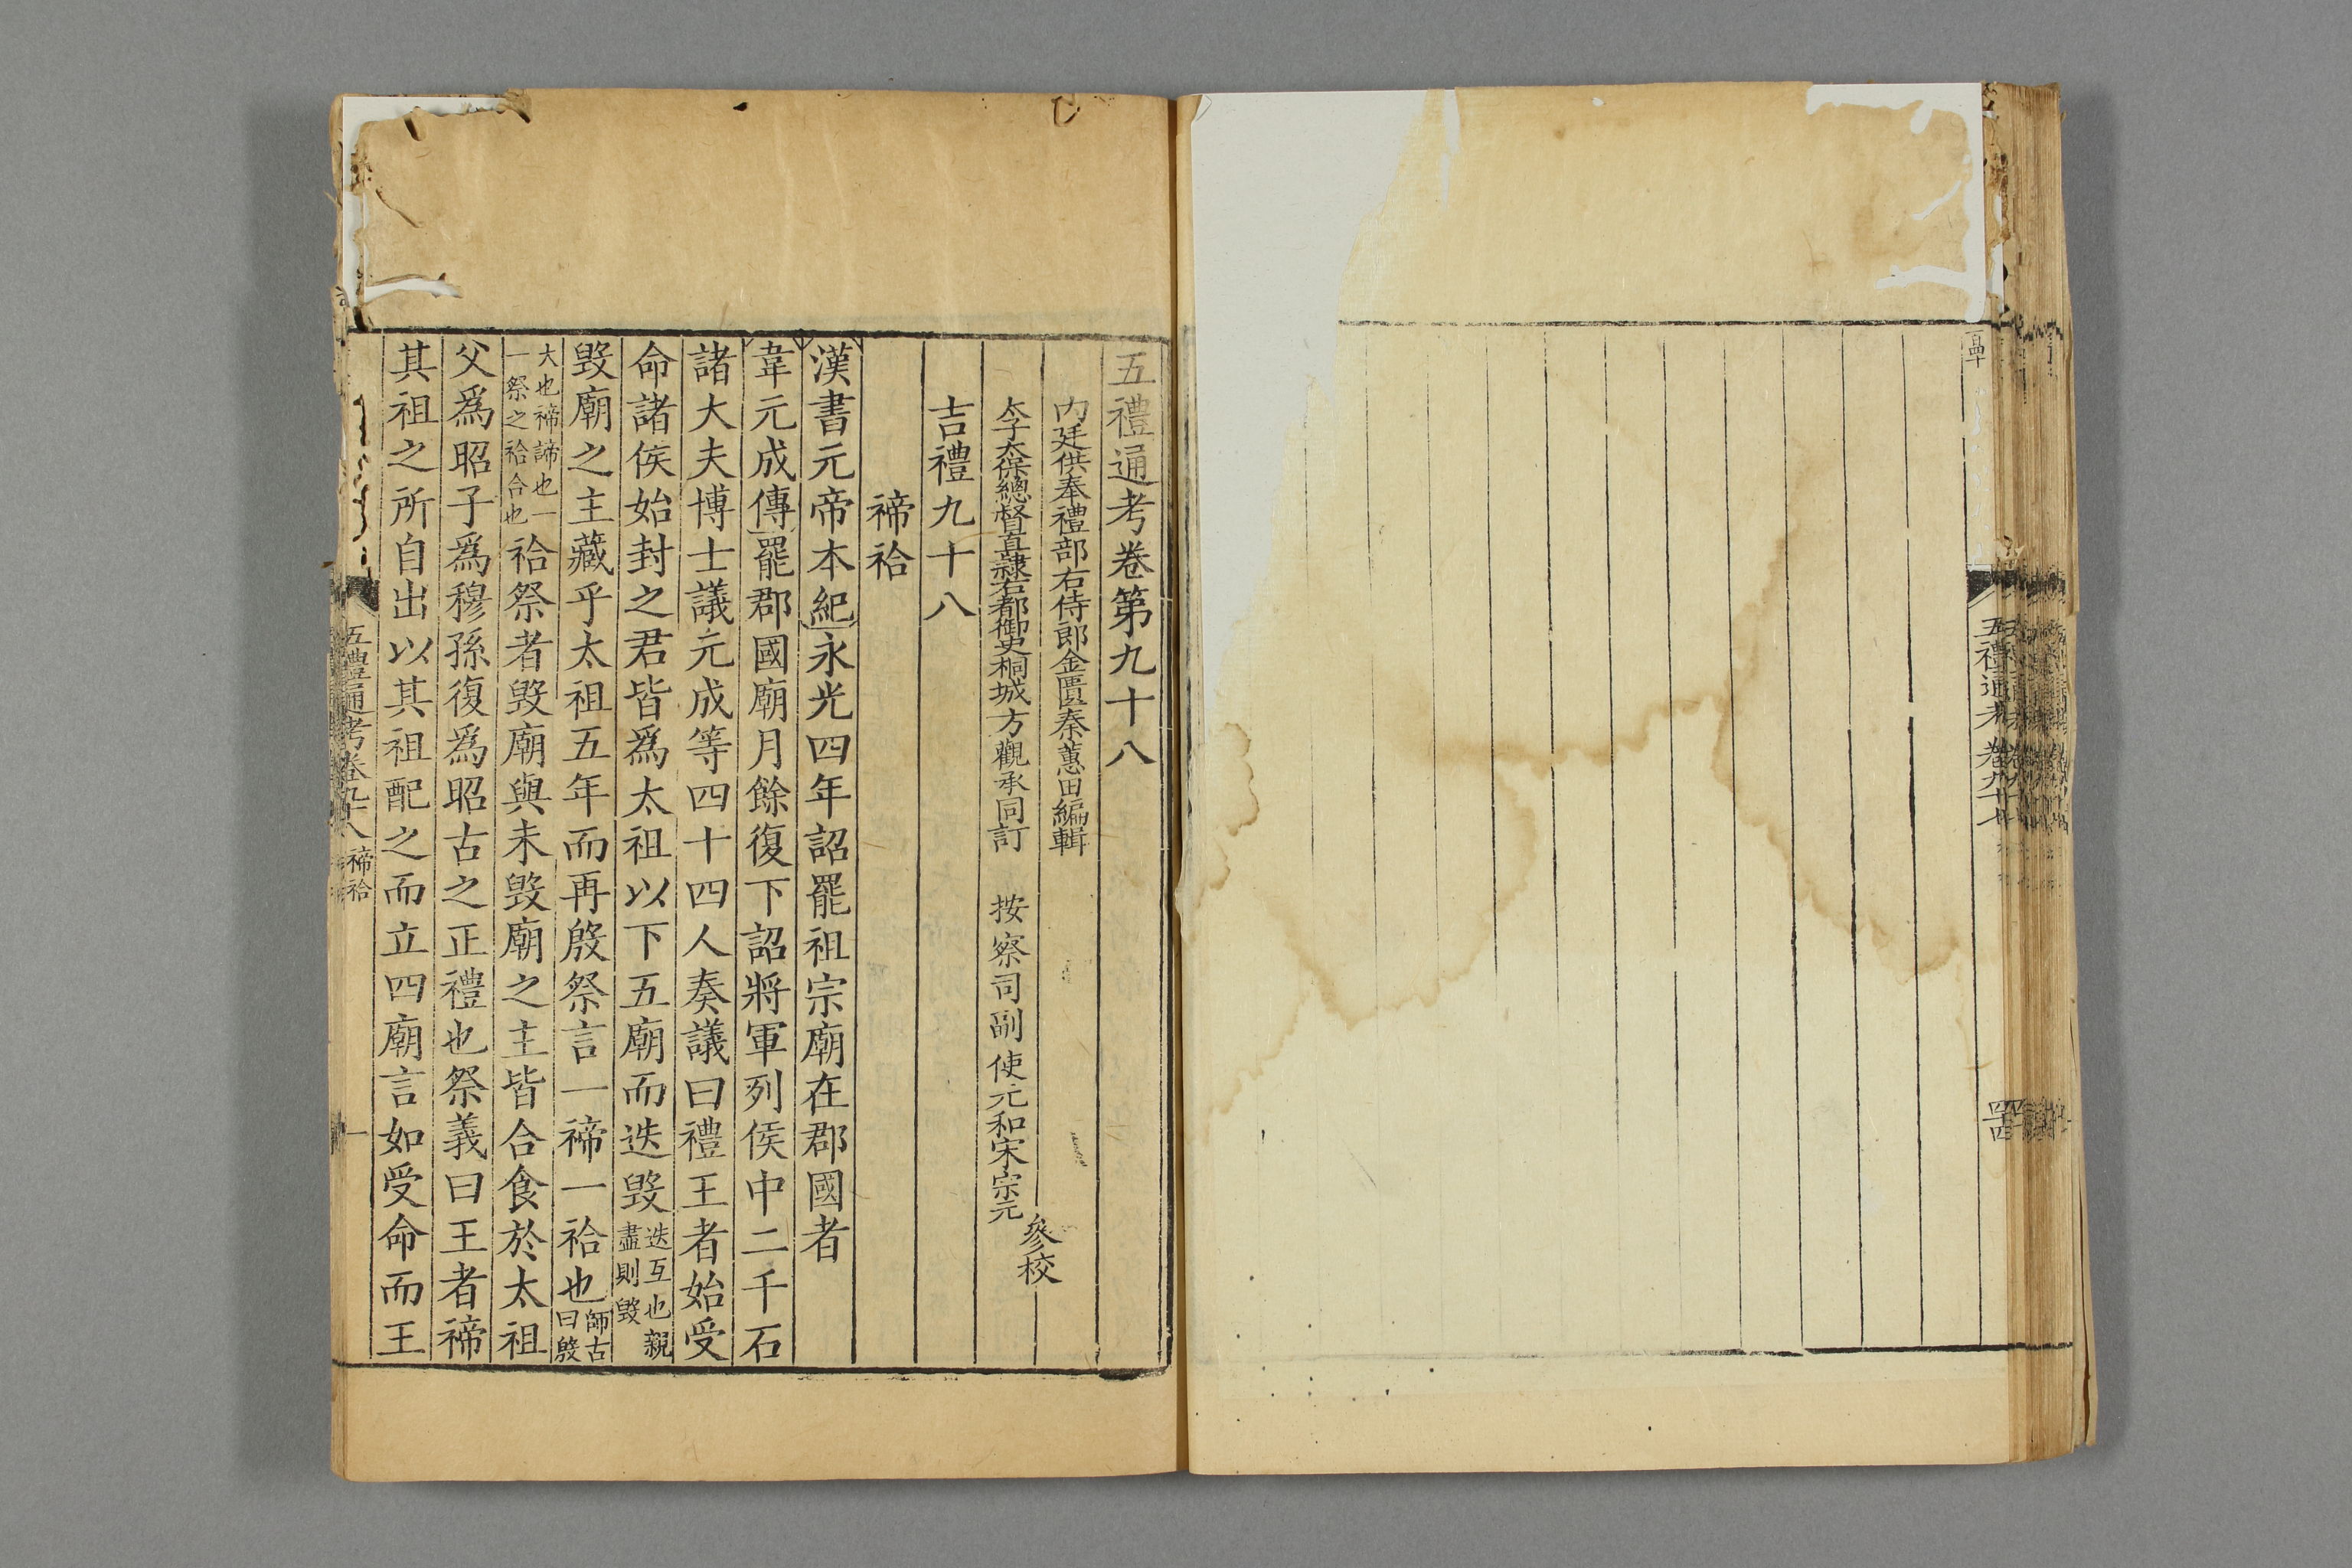 五禮通考 卷九十七
四十四
五禮通考卷第九十八
內廷供奉禮部右侍郎金匱秦蕙田編輯
太子太保總督直隸右都御史桐城方觀承同訂 按察司副使元和宋宗元
參校
吉禮九十八
禘祫
漢書元帝本紀永光四年詔罷祖宗廟在郡國者
韋元成傳罷郡國廟月餘復下詔將軍列侯中二千石
諸大夫博士議元成等四十四人奏議曰禮王者始受
命諸侯始封之君皆爲太祖以下五廟而迭毀迭互也親盡則毀
毀廟之主藏乎太祖五年而再殷祭言一禘一祫也師古曰殷
大也禘諦也一一祭之祫合也祫祭者毀廟與未毀廟之主皆合食於太祖
父爲昭子爲穆孫復爲昭古之正禮也祭義曰王者禘
其祖之所自出以其祖配之而立四廟言如受命而王
五禮通考卷九十八 禘祫
一